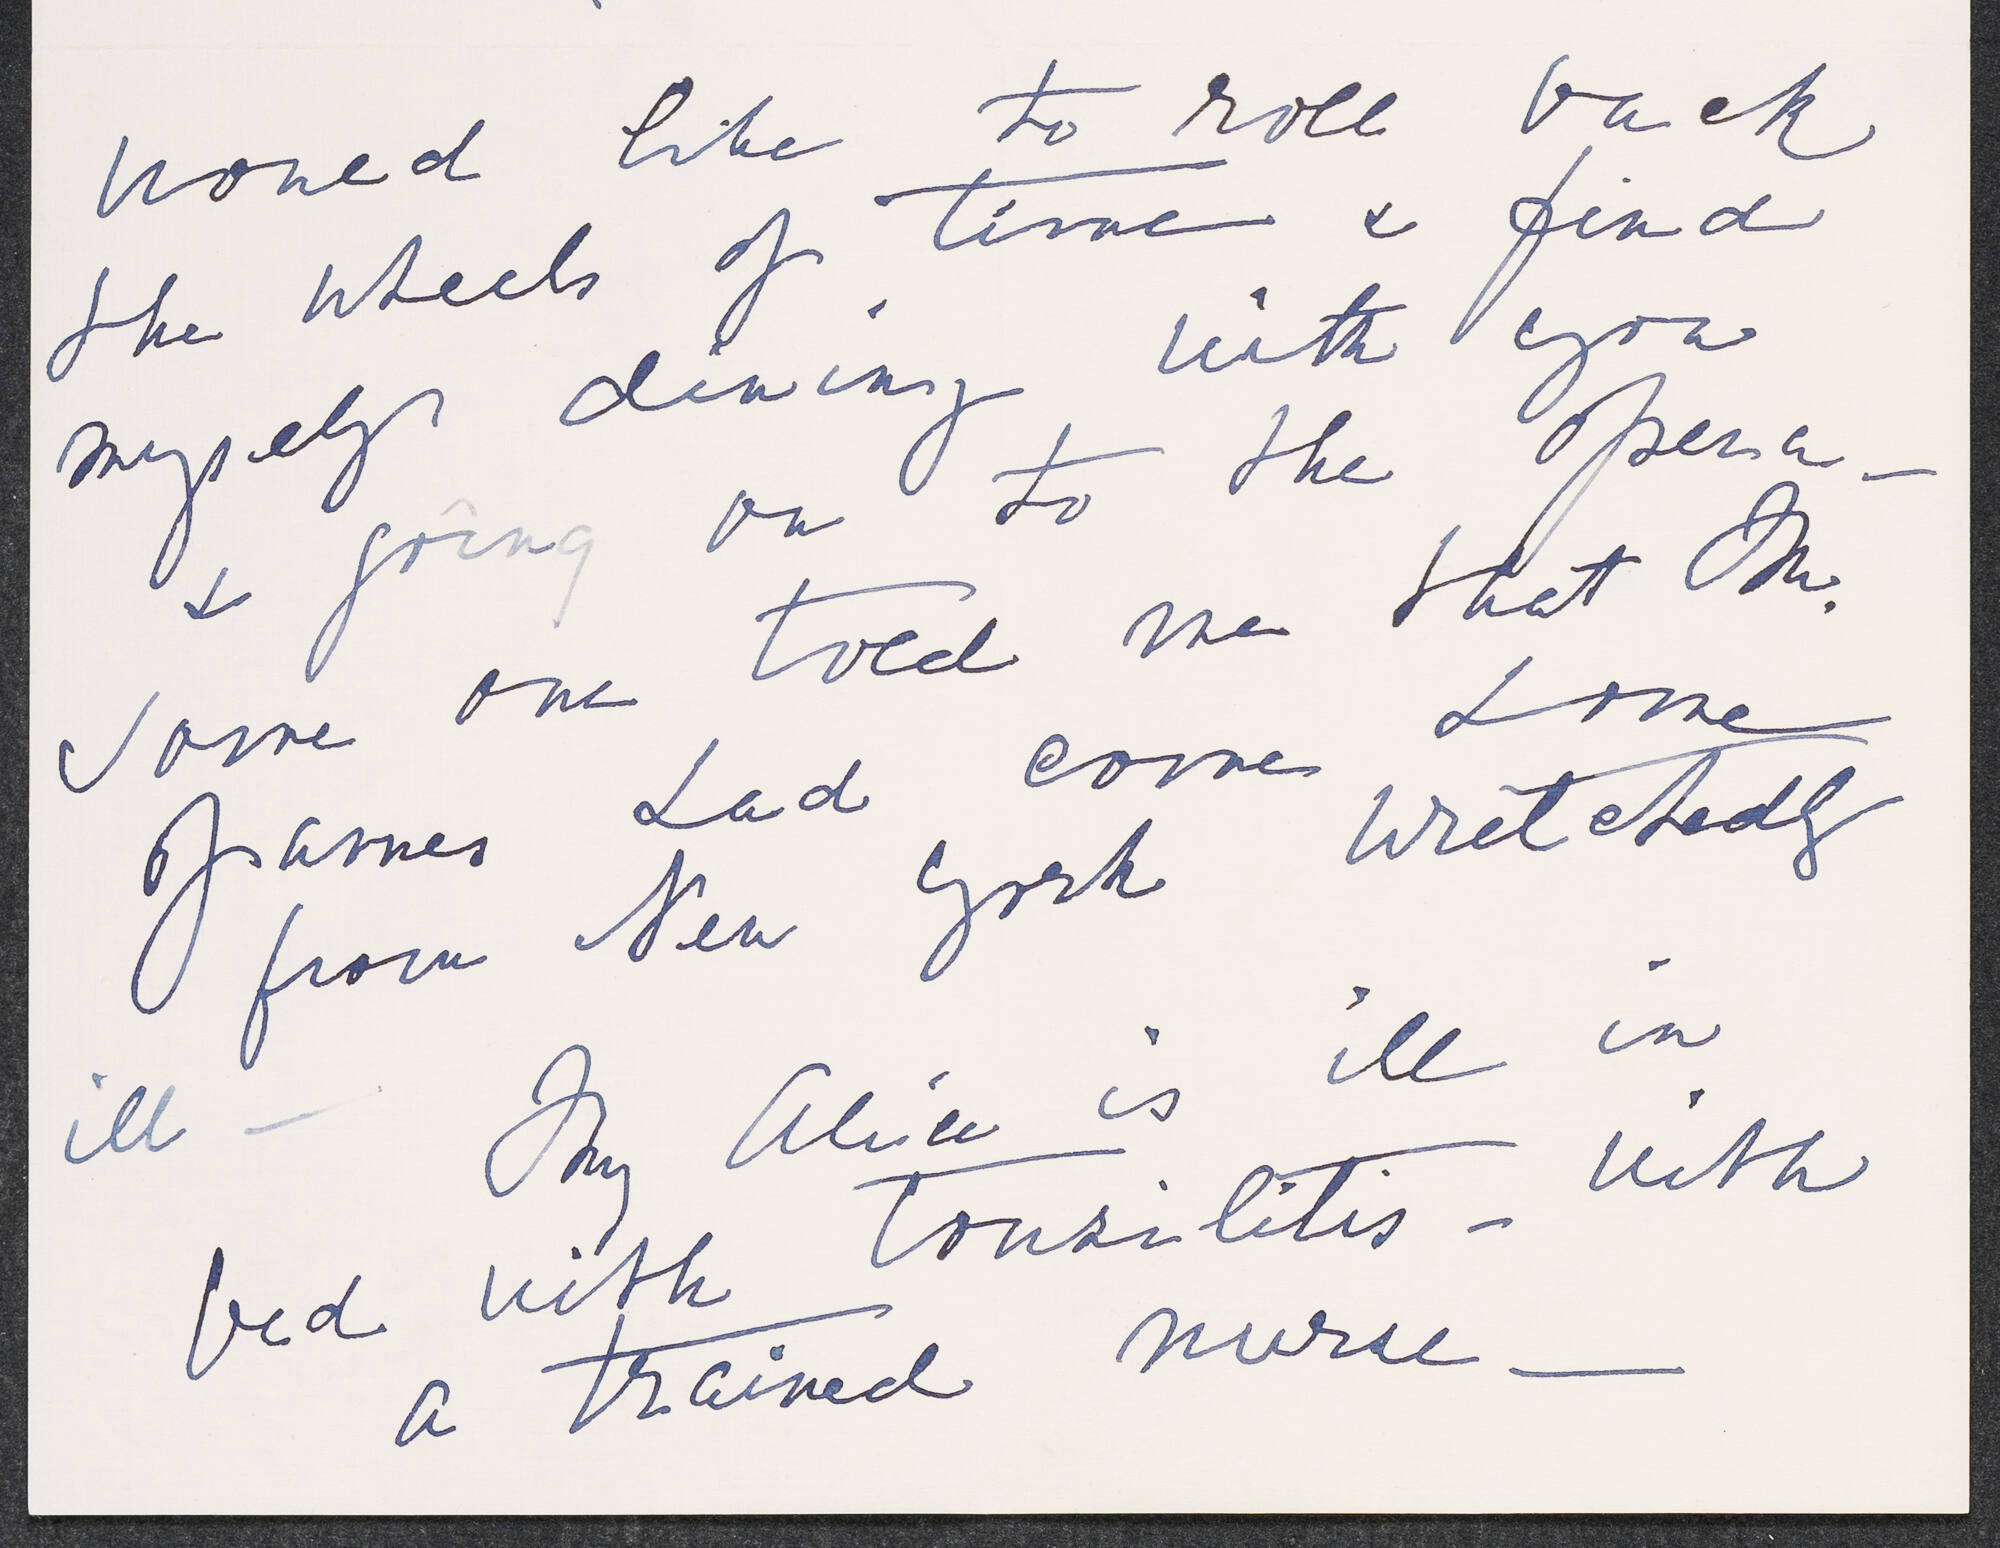 would like to roll back
the wheels of time & find
myself dining with you
& going on to the opera –
Some one told me that Mr.
James had come home
from New York wretchedly
ill – My Alice is ill in
bed with tonsilitis – with
a trained nurse –